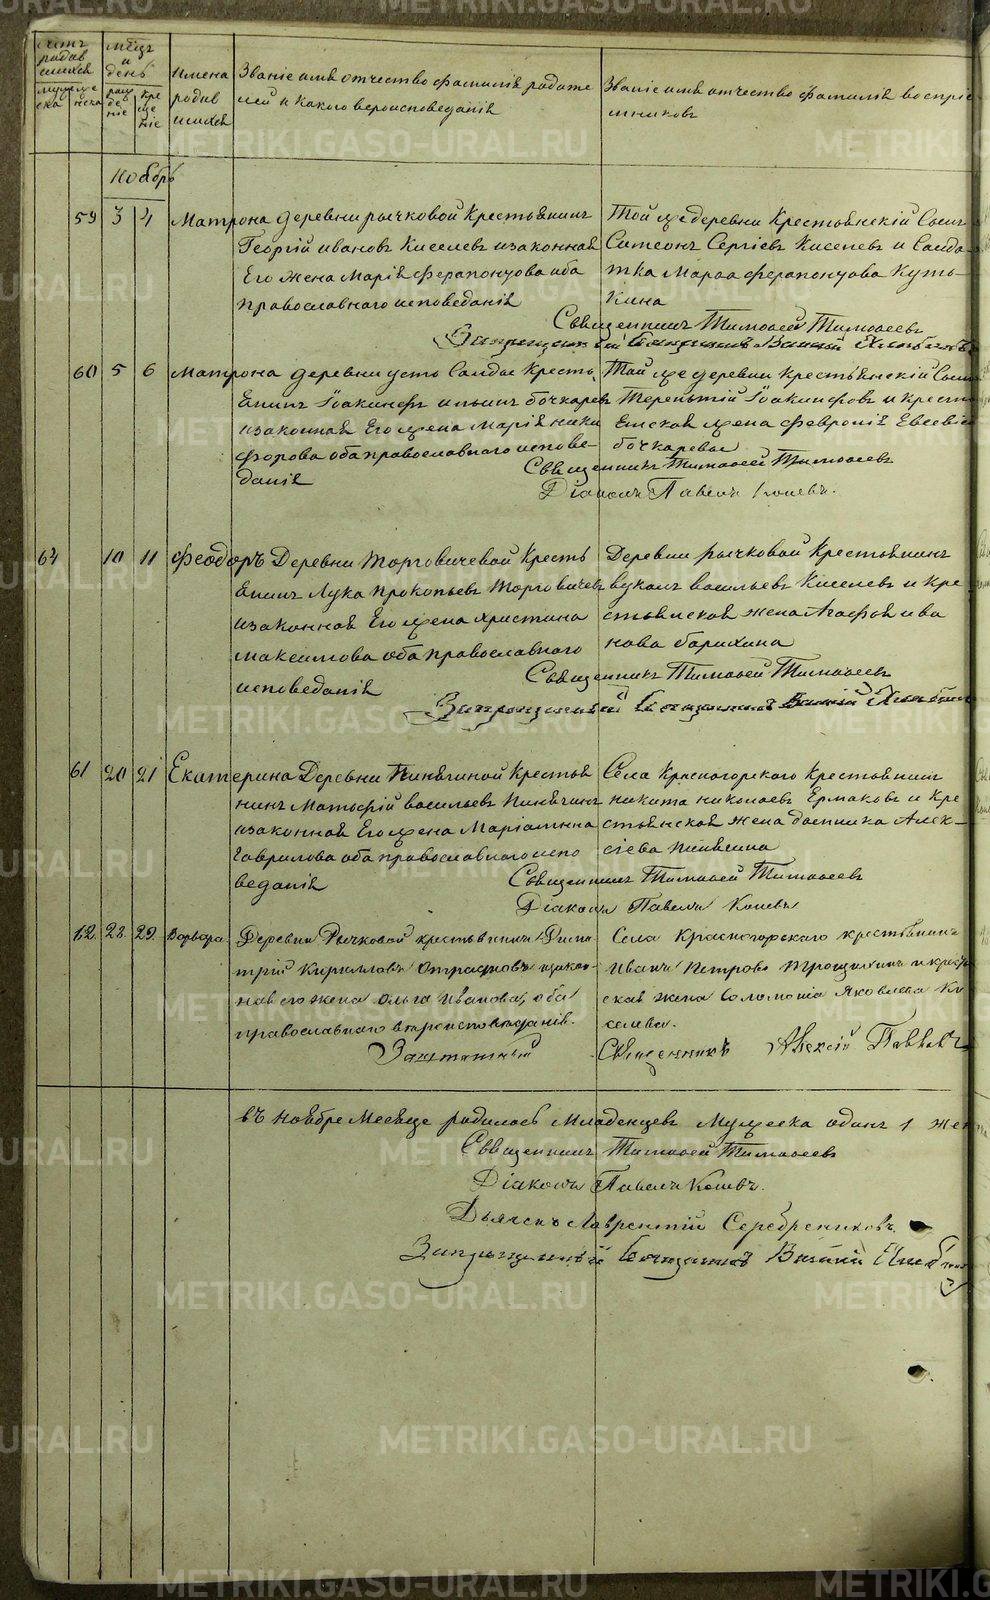 METRIKI.GASO-URAL.RU
Счетъ родив шихся
муже ска
жеска
Мѣсяцъ и день
рож де ніе
кре ще ніе
Имена родив шихся
Званіе имя отчество фамилія родите
лей и какого вероисповеданія
Званіе имя отчество фамилія воспріе
мниковъ
Ноябрь
59 3 4 Матрона деревни рычковой Крестьянинъ
Георгій ивановъ Киселевъ изаконная
Его жена Марія ферапонтова оба
православнаго исповеданія
Той же деревни Крестьянскій Сынъ
Симеонъ Сергіевъ Киселевъ и Солда
тка Марѳа ферапонтова Куть-
кина
Священникъ Тимоѳей Тимоѳеевъ
60 5 6 Матрона деревни усть Салды Кресть
янинъ Іоакинфъ ильинъ бочкаревъ
изаконная Его жена Марія ники
форова оба православнаго испове-
данія
Той же деревни Крестьянскій Сынъ
Терентій Іоакинфовъ и кресть
янская жена февронія Евсевіе
бочкаревы
Священникъ Тимоѳей Тимоѳеевъ
Діаконъ Павелъ Коневъ.
64 10 11 Феодоръ Деревни Торговичевой Кресть
янинъ Лука прокопьевъ Торговичевъ
изаконная Его жена христина
максимова оба православнаго
исповеданія
Деревни рычковой Крестьянинъ
вуколъ васильевъ Киселевъ и кре
стьянская жена Агафья ива
нова барихина
Священникъ Тимоѳей Тимоѳеевъ
61 20 21 Екатерина Деревни Пинягиной Крестья
нинъ Матьфій васильевъ Пинягинъ
изаконная Его жена Маріамна
Гаврилова оба православнаго испо
веданія
Села Красногорскаго Крестьянинъ
никита николаевъ Ермаковъ и Кре
стьянская жена домника Алек-
сіева пинягина
Священникъ Тимоѳей Тимоѳеевъ
Діаконъ Павелъ Коневъ
62. 28 29. Варвара Деревни Рычковой крестьянинъ Дими
трій Кирилловъ Отрадновъ изакон-
ная его жена Ольга Иванова, оба
православнаго вѣроисповѣданія.
Села Красногорскаго крестьянинъ
Иванъ Петровъ Трошихинъ и крестьян
ская жена Соломонія Яковлева Ки
селева.
Заштатный Священникъ Алексій Павловъ
въ ноябре месяце родилось Младенцевъ Мужеска одинъ 1 жен
Священникъ Тимоѳей Тимоѳеевъ
Діаконъ Павелъ Коневъ.
Дьячекъ Лаврентій Серебренниковъ.